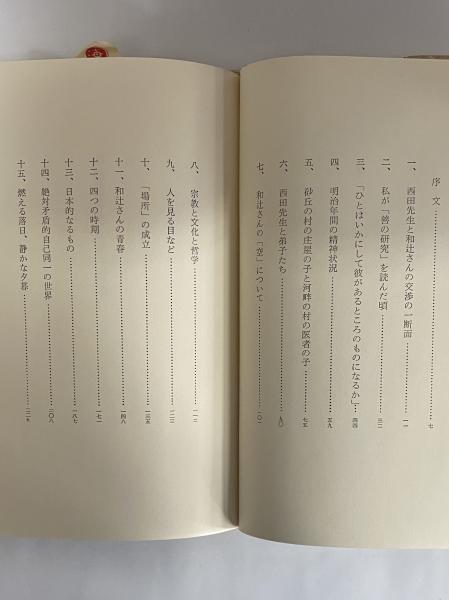 序文……七
一、西田先生と和辻さんの交渉の一断面……一一
二、私が「善の研究」を読んだ頃……三二
三、「ひとはいかにして彼があるところのものになるか」……四四
四、明治年間の精神状況……五九
五、砂丘の村の庄屋の子と河畔の村の医者の子……七五
六、西田先生と弟子たち……
七、和辻さんの「空」について……一〇一
八、宗教と文化と哲学……一一二
九、人を見る目など……一二三
十、「場所」の成立……一三五
十一、和辻さんの青春……一四八
十二、四つの時期……一七一
十三、日本的なるもの……一八七
十四、絶対矛盾的自己同一の世界……二〇八
十五、燃える落日、静かな夕暮……二二九